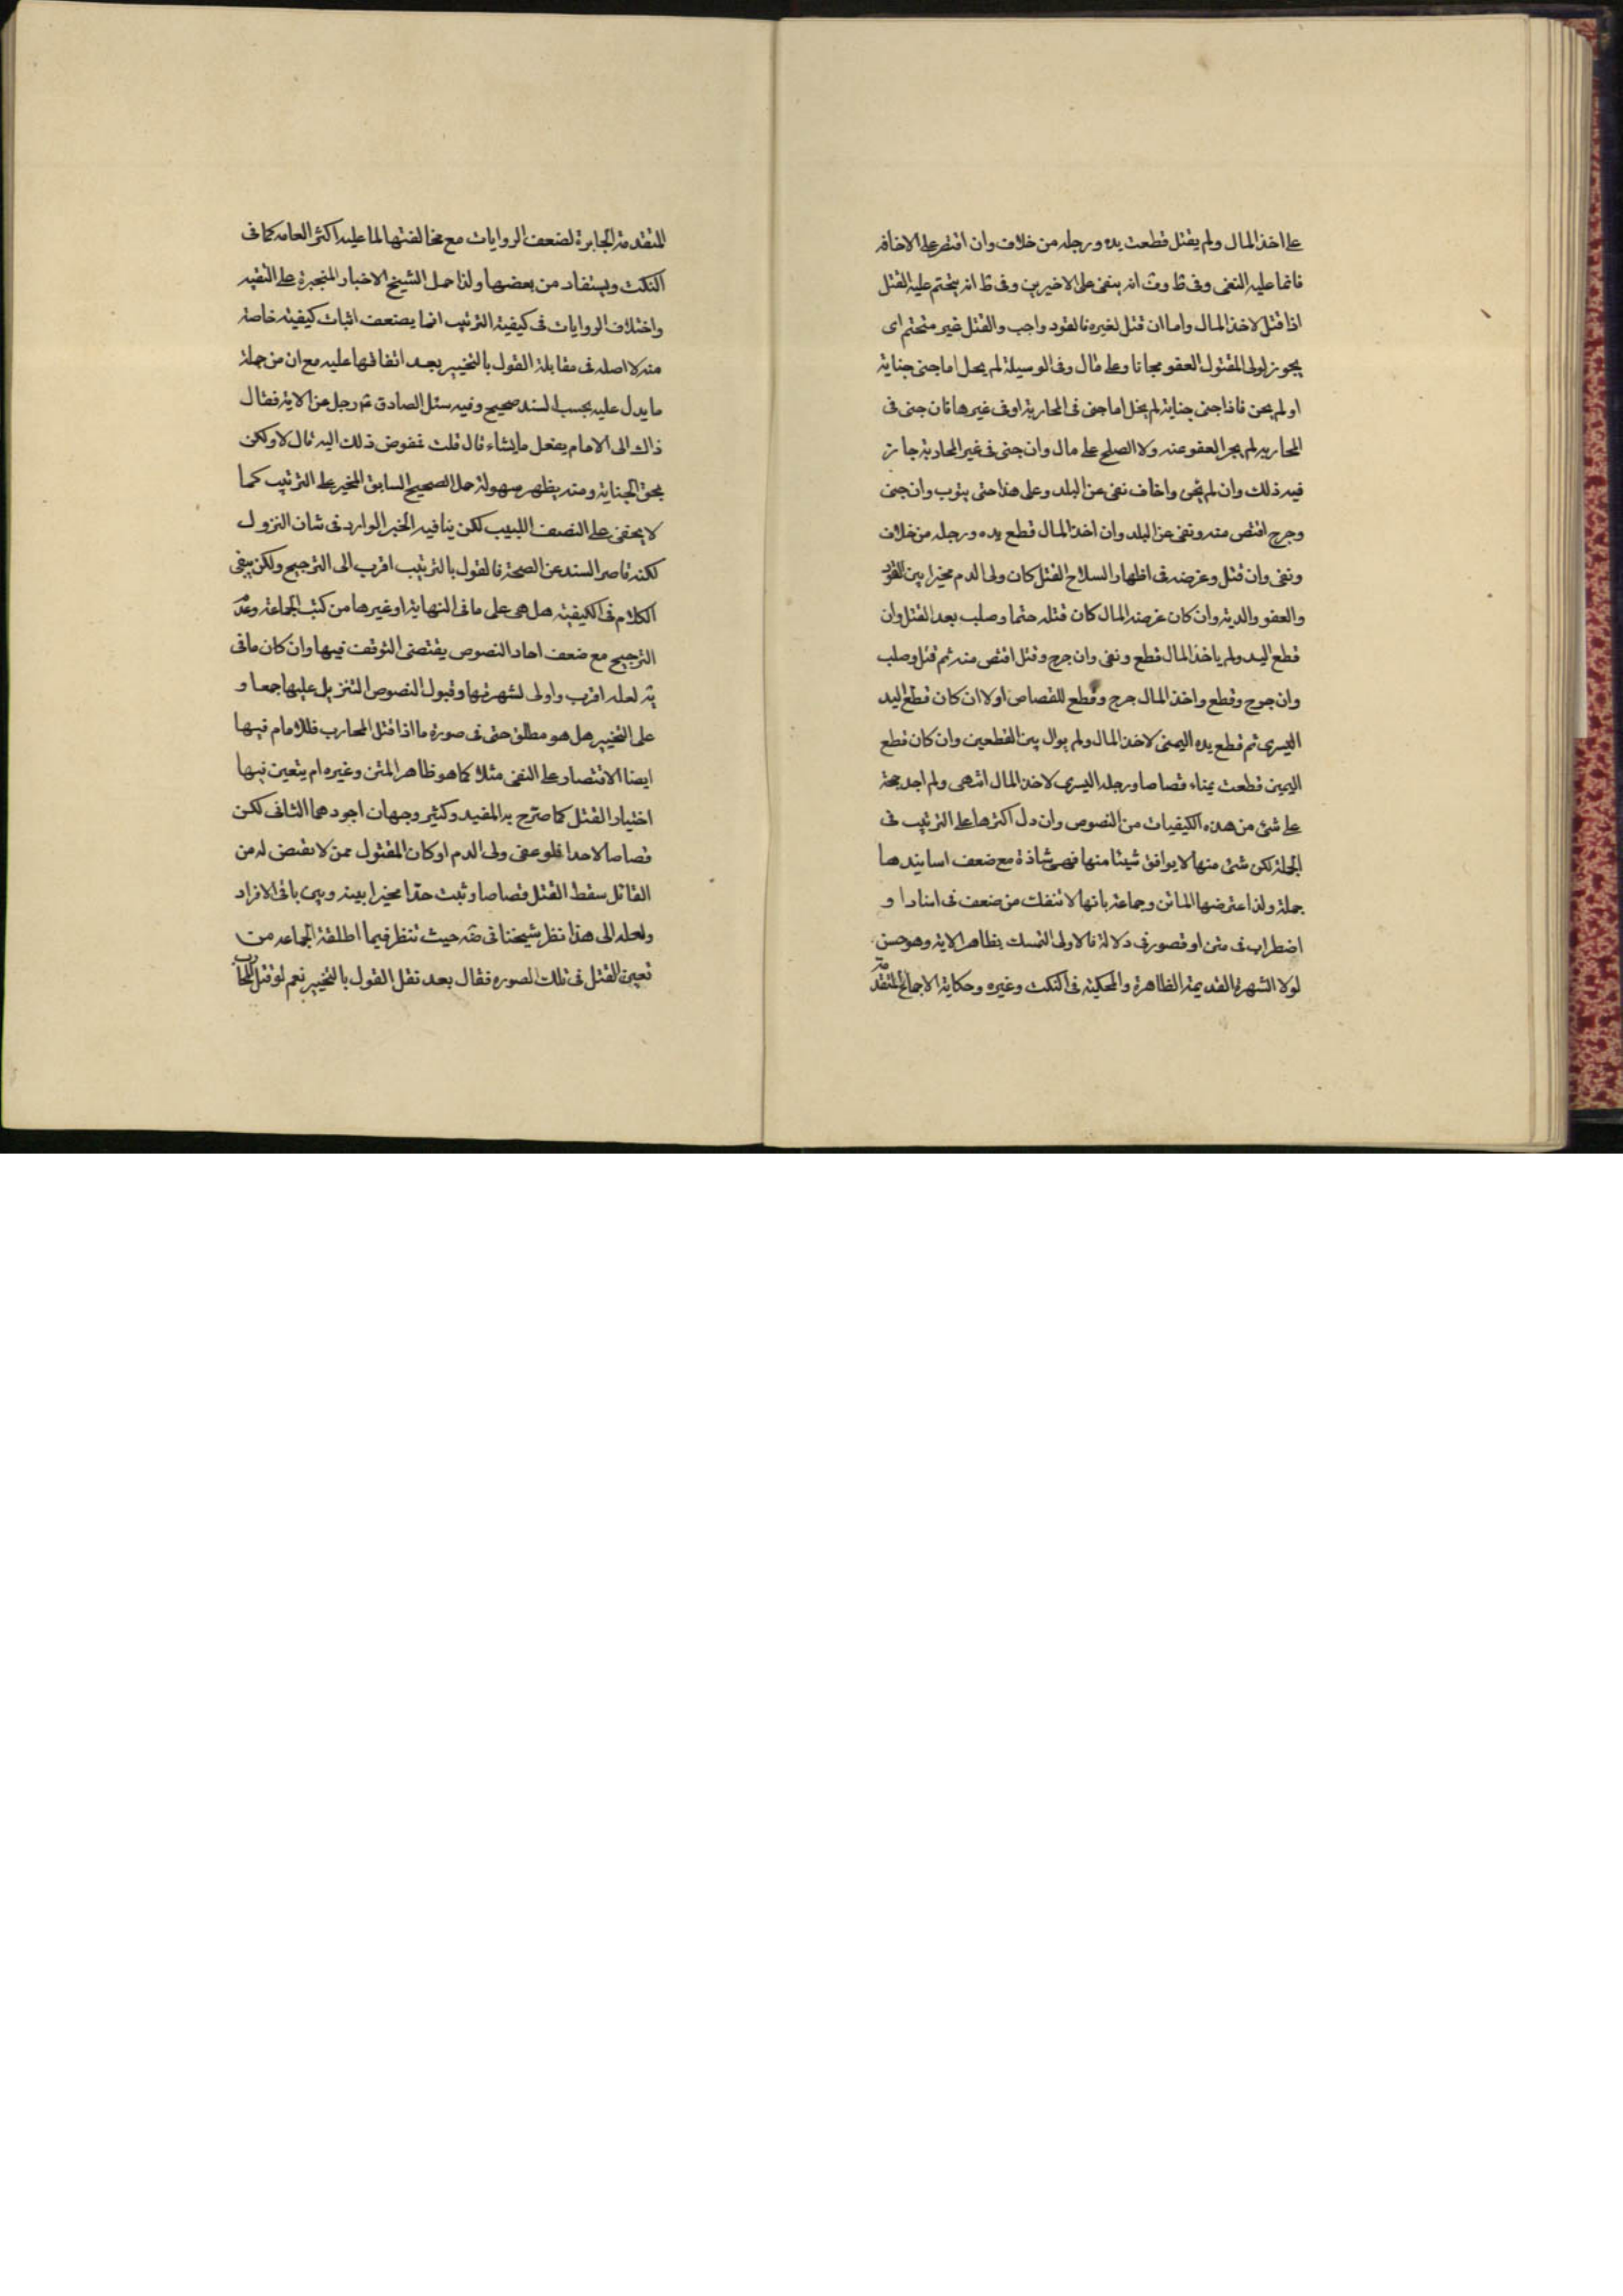 على اخذ المال ولم يقتل قطعت يده ورجله من خلاف وان اقتصر على الاخافه
فانما عليه النفى وفى ط وف انه ينفى على الاخيرين وفى ط انه يتحتم عليه القتل
اذا قتل لاخذ المال واما ان قتل لغيره فالقود واجب والقتل غير متحتم اى
يجوز لولى المقتول العفو مجانا وعلى مال وفى الوسيلة لم يخل اما جنى جناية
او لم يجن فاذا جنى جناية لم يخل اما جنى فى المحاربة او فى غيرها فان جنى فى
المحاربه لم يجز العفو عنه ولا الصلح على مال وان جنى فى غير المحاربة جاز
فيه ذلك وان لم يجن واخاف نفى عن البلد وعلى هذا حتى يتوب وان جنى
وجرح اقتص منه ونفى عن البلد وان اخذ المال قطع يده ورجله من خلاف
ونفى وان قتل وغرضه فى اظهار السلاح القتل كان ولى الدم مخيرا بين القود
والعفو والدية وان كان غرضه المال كان قتله حتما وصلب بعد القتل وان
قطع اليد ولم ياخذ المال قطع ونفى وان جرح وقتل اقتص منه ثم قتل وصلب
وان جرح وقطع واخذ المال جرح وقطع للقصاص اولا ان كان قطع اليد
اليسرى ثم قطع يده اليمنى لاخذ المال ولم يوال بين القطعين وان كان قطع
اليمين قطعت يمناه قصاصا ورجله اليسرى لاخذ المال انتهى ولم اجد حجة
على شئ من هذه الكيفيات من النصوص وان دل اكثرها على الترتيب فى
الجملة لكن شئ منها لا يوافق شيئا منها فهى شاذة مع ضعف اسانيدها
جملة ولذا اعترضها الماتن وجماعة بانها لا تنفك من ضعف فى اسناد او
اضطراب فى متن او قصور فى دلالة فالاولى التمسك بظاهر الاية وهو حسن
لولا الشهرة القديمة الظاهرة والمحكية فى النكت وغيره وحكاية الاجماع المتقدمة
المتقدمة الجابرة لضعف الروايات مع مخالفتها لما عليه اكثر العامه كما فى
النكت ويستفاد من بعضها ولذا حمل الشيخ الاخبار المنجبرة على التقيه
واختلاف الروايات فى كيفية الترتيب انما يضعف اثبات كيفيته خاصة
منه لا اصله فى مقابلة القول بالتخيير بعد اتفاقها عليه مع ان من جملة
ما يدل عليه بحسب السند صحيح وفيه سئل الصادق عم رجل عن الاية فقال
ذاك الى الامام يفعل ما يشاء قال قلت فمفوض ذلك اليه قال لا ولكن
بحق الجناية ومنه يظهر سهولة حمل الصحيح السابق المخير على الترتيب كما
لا يخفى على النصف اللبيب لكن ينافيه الخبر الوارد فى شان النزول
لكنه قاصر السند عن الصحة فالقول بالترتيب اقرب الى الترجيح ولكن يبقى
الكلام فى الكيفيته هل هى على ما فى النهاية او غيرها من كتب الجماعة وعدم
الترجيح مع ضعف احاد النصوص يقتضى التوقف فيها وان كان ما فى
يه لعله اقرب واولى لشهرتها وقبول النصوص التنزيل عليها جمعا و
على التخيير هل هو مطلق حتى فى صورة ما اذا قتل المحارب فللامام فيها
ايضا الاقتصار على النفى مثلا كما هو ظاهر المتن وغيره ام يتعين فيها
اختيار القتل كما صرح به المفيد وكثير وجهان اجودهما الثانى لكن
قصاصا لا حدا فلو عفى ولى الدم او كان المقتول ممن لا يقتص له من
القاتل سقط القتل قصاصا وثبت حدا مخيرا بينه وبين باقى الافراد
ولعله الى هذا نظر شيخنا فى ضه حيث تنظر فيما اطلقة الجماعه من
تعيين القتل فى تلك الصوره فقال بعد نقل القول بالتخيير نعم لو قتل المحارب